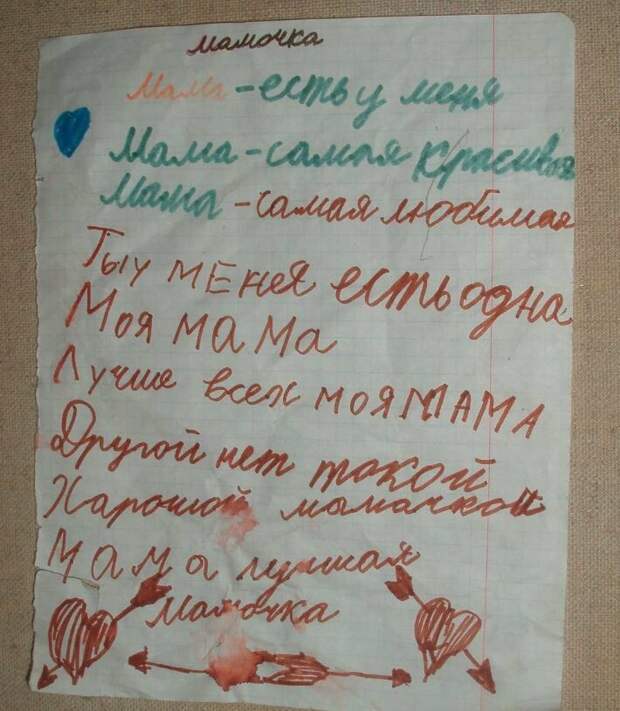 мамочка
Мама - есть у меня
Мама - самая красивая
Мама - самая любимая
Ты у меня есть одна
Моя мама
Лучше всех моя мама
Другой нет такой
Харошой мамачкой
Мама лучшая
мамочка